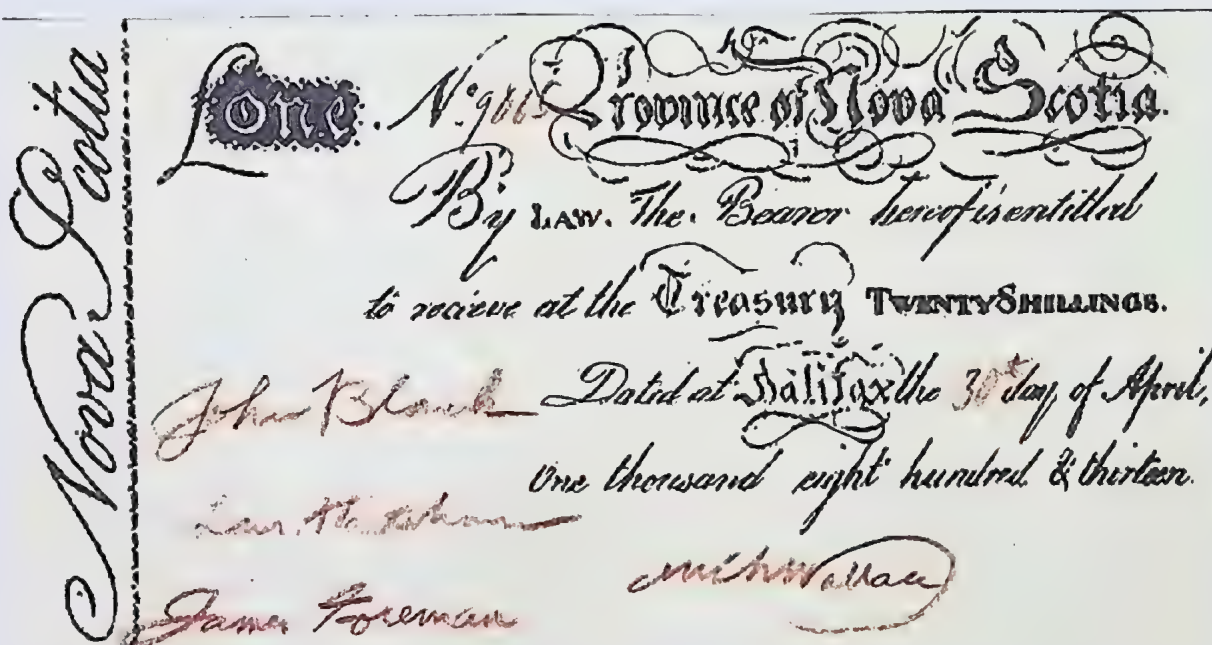 Nova Scotia
£one. No. 9005 Province of Nova Scotia.
By LAW. The Bearor hereof is entitled
to recieve at the Treasury TWENTY SHILLINGS.
Dated at Halifax the 30th day of April,
one thousand eight hundred & thirteen.
John Black
James Foreman
Mich Wallace